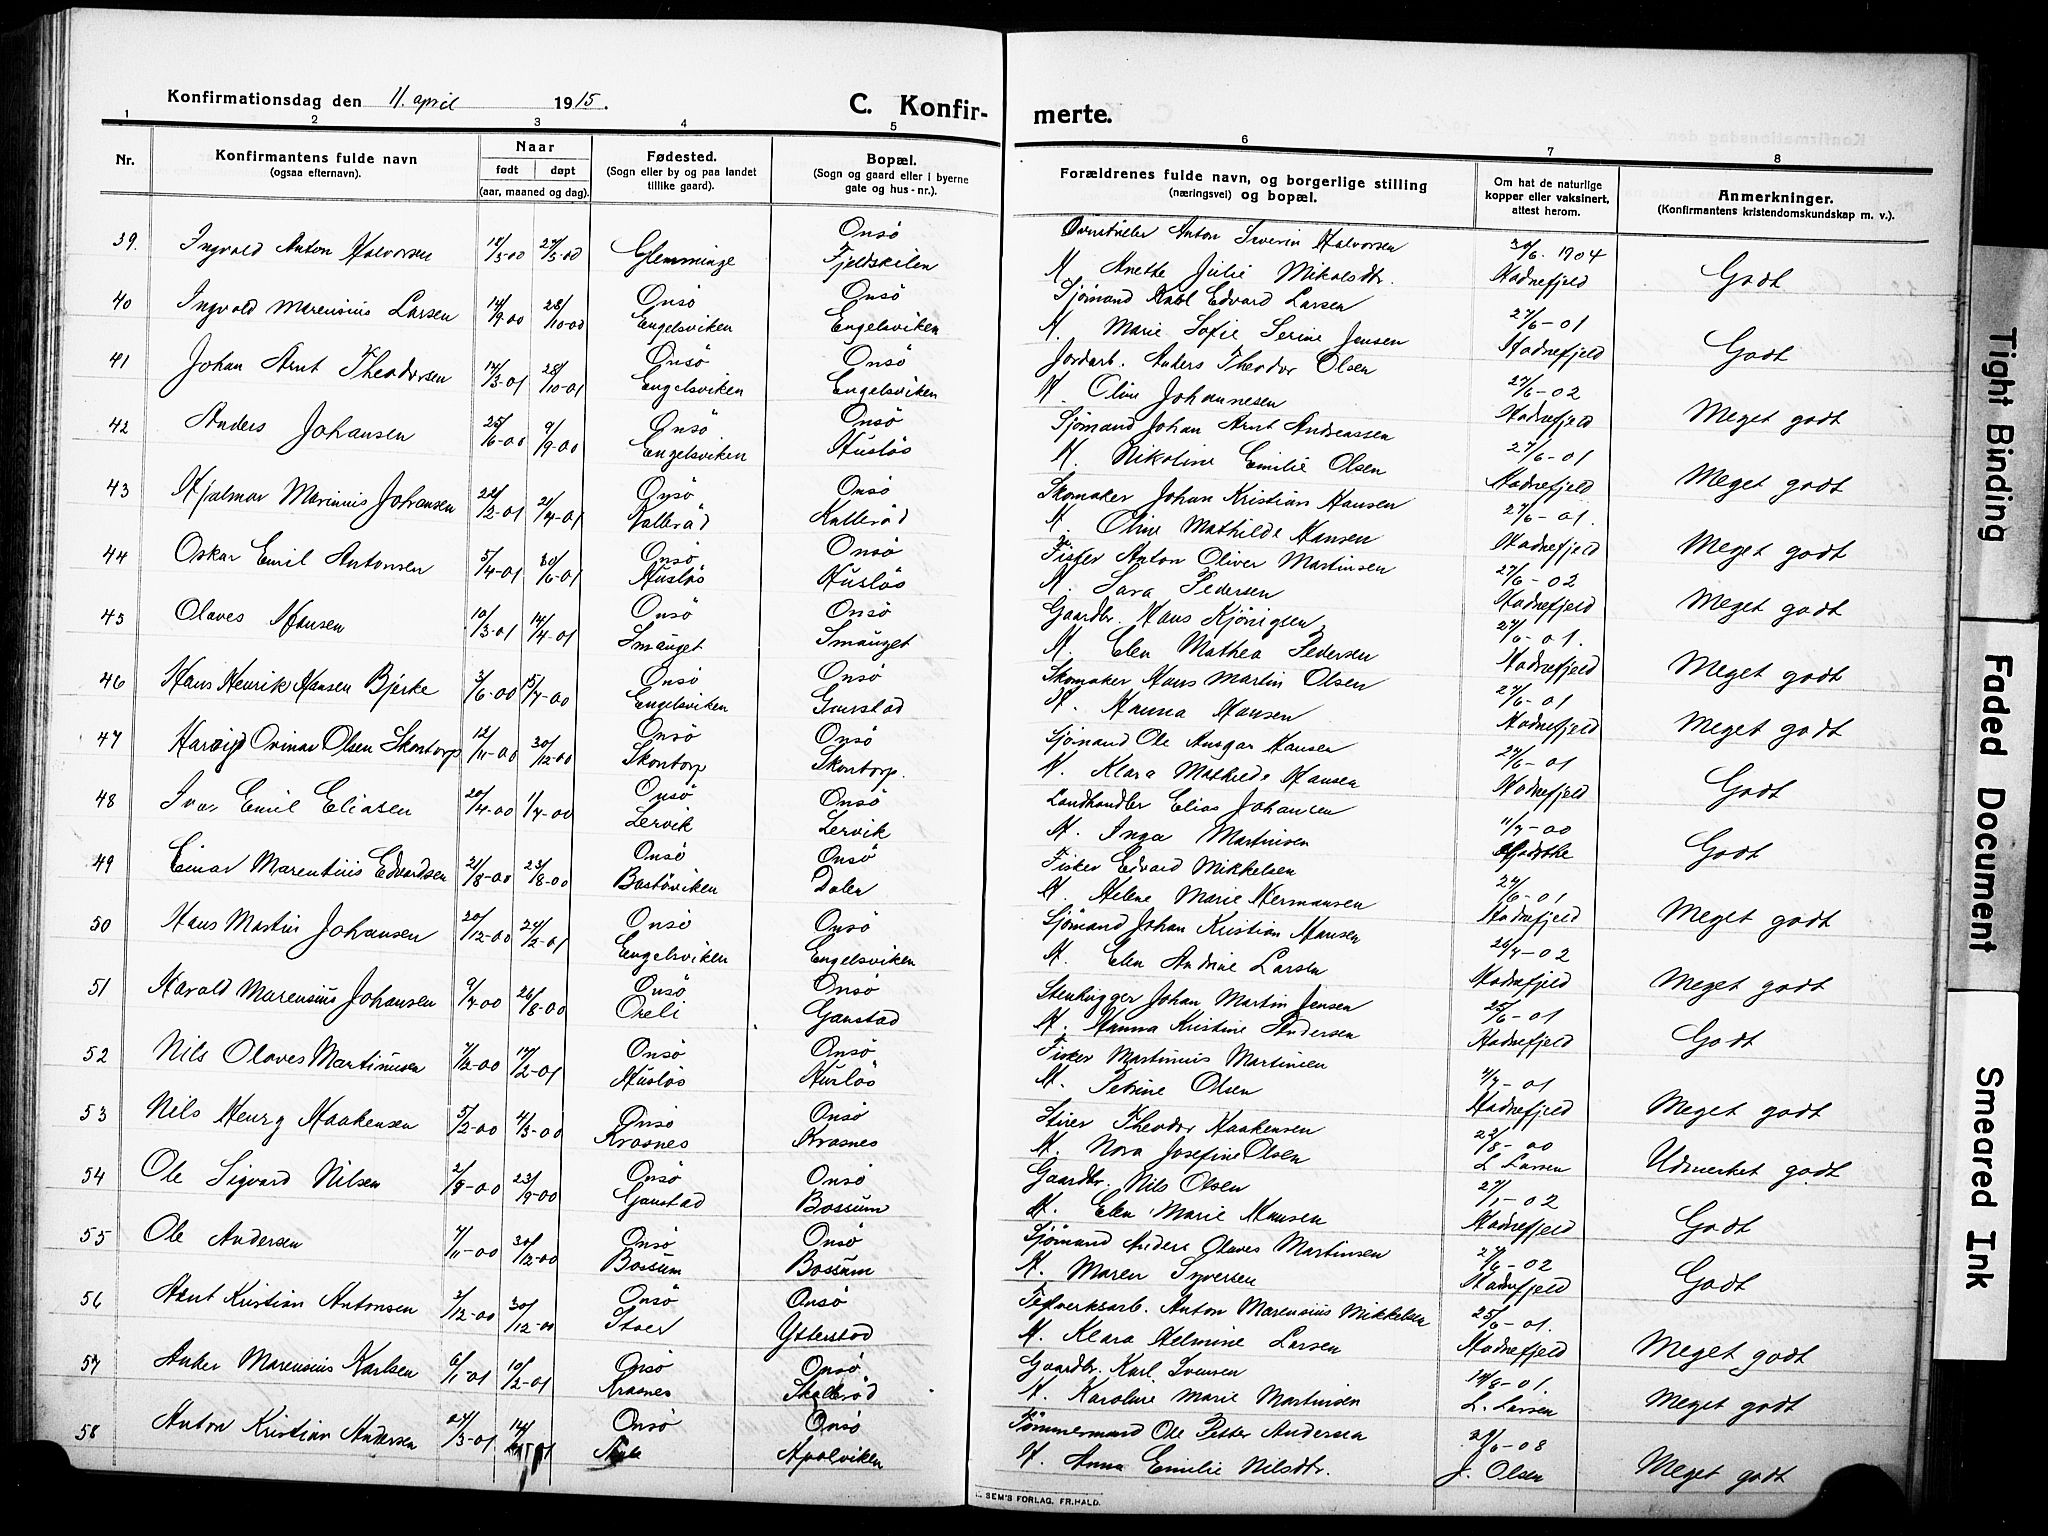 Konfirmationsdag den 11. april 1915.
C. Konfir-
merte.
1 2 3 4 5 6 7 8
Nr.
Konfirmantens fulde navn
(ogsaa efternavn).
Naar
født døpt
(aar, maaned og dag).
Fødested.
(Sogn eller by og paa landet
tillike gaard).
Bopæl.
(Sogn og gaard eller i byerne
gate og hus-nr.).
Forældrenes fulde navn, og borgerlige stilling
(næringsvei) og bopæl.
Om hat de naturlige
kopper eller vaksinert,
attest herom.
Anmerkninger.
(Konfirmantens kristendomskundskap m. v.).
39. Ingvald Anton Halvorsen 18/3-00 27/5-00 Glemminge Onsö Fjeldskilen
Anton Severin Halvorsen 30/6. 1904
H. Anette Julie Mikalsdtr. Hadnefjeld Godt
40 Ingvald Marensius Larsen 14/9 00 28/10-00 Onsö Engelsviken Onsö Engelsviken
Sjömand Karl Edvard Larsen 27/6-01
H. Marie Sofie Serine Jensen Hadnefjeld Godt
41 Johan Arnt Theodorsen 14/3-01 28/10-01 Onsö Engelsviken Onsö Engelsviken
Jordarb. Anders Theodor Olsen 27/6-02
H. Oline Johannesen Hadnefjeld Meget godt
42 Anders Johansen 25/6-00 9/9-00 Onsö Engelsviken Onsö Huslös
Sjömand Johan Arnt Andreassen 27/6-01
H. Nikoline Emilie Olsen Hadnefjeld Meget godt
43 Hjalmar Marinius Johansen 22/2-01 21/4-01 Onsö Kalleröd Onsö Kalleröd
Skomaker Johan Kristian Hansen 27/6-01.
H. Oline Mathilde Hansen Hadnefjeld Meget godt
44 Oskar Emil Antonsen 5/4-01 30/6-01 Onsö Huslös Onsö Huslös
Fisker Anton Oliver Martinsen 27/6-02
H. Sara Pedersen Hadnefjeld Meget godt
45 Olaves Hansen 10/3-01 14/4-01 Onsö Smauget Onsö Smauget
Gaardbr. Hans Kjönigsen 27/6-01.
H. Elen Mathea Pedersen Hadnefjeld Meget godt
46 Hans Henrik Hansen Bjerke 3/6-00 15/7-00 Onsö Engelsviken Onsö Gaustad
Skomaker Hans Martin Olsen 27/6-01
H. Hanna Hansen Hadnefjeld Meget godt
47 Olsen Skontorp 12/11-00 30/12-00 Onsö Skontorp Onsö Skontorp.
Sjömand Ole Ansgar Hansen 27/6-01
H. Klara Mathilde Hansen Hadnefjeld Godt
48 Ivar Emil Eliasen 20/4-00 1/7-00 Onsö Lervik Onsö Lervik
Landhandler Elias Johansen 11/7-00
H. Inga Martinsen Godt
49 Einar Marentius Edvardsen 21/8-00 23/8-00 Onsö Bastöviken Onsö Dalen
Fisker Edvard Mikkelsen 27/6-01
H. Helene Marie Hermansen Hadnefjeld Meget godt
50 Hans Martin Johansen 20/12-00 24/2-01 Onsö Engelsviken Onsö Engelsviken
Sjömand Johan Kristian Hansen 26/7-02
H. Elen Andrine Larsen Hadnefjeld Meget godt
51 Harald Marensius Johansen 9/7-00 26/8-00 Onsö Oreli Onsö Gaustad
Stenhugger Johan Martin Jensen 25/6-01
H. Hanna Kristine Andersen Hadnefjeld Godt
52 Nils Olaves Martinusen 7/12-00 17/2-01 Onsö Huslös Onsö Huslös
Fisker Martinius Martinsen 4/7-01
H. Petrine Olsen Hadnefjeld Meget godt
53 Nils Henry Haakensen 5/2-00 4/3-00 Onsö Kraanes Onsö Kraanes
Stuer Theodor Haakensen 22/8-00
H. Nora Josefine Olsen L Larsen Udmerket godt
54 Ole Sigvard Nilsen 2/8-00 23/9-00 Onsö Gaustad Onsö Bossum
Gaardbr. Nils Olsen 27/5-02
H. Elen Marie Hansen Hadnefjeld Godt
55 Ole Andersen 7/11-00 30/12-00 Onsö Bossum Onsö Bossum
Sjömand Anders Olaves Martinsen 27/6-02
H. Maren Syversen Hadnefjeld Godt
56 Arnt Kristian Antonsen 3/12-00 30/12-00 Onsö Onsö Ytterstad
Teglverksarb. Anton Marensius Mikkelsen 25/6-01.
H. Klara Helmine Larsen Hadnefjeld Meget godt
57 Anker Marensius Karlsen 6/1-01 10/2-01 Onsö Kraanes Onsö Skalleröd
Gaardbr. Karl Svensen 14/8-01.
H. Karoline Marie Martinsen L. Larsen Meget godt
58 Anton Kristian Andersen 27/3-01 14/ Onsö Onsö Apalviken
Tömmermand Ole Petter Andersen 29/6-08
H. Anna Emilie Nilsdtr. J. Olsen Meget godt
SEM'S FORLAG, FR.HALD.
Tight Binding
Faded Document
Smeared Ink